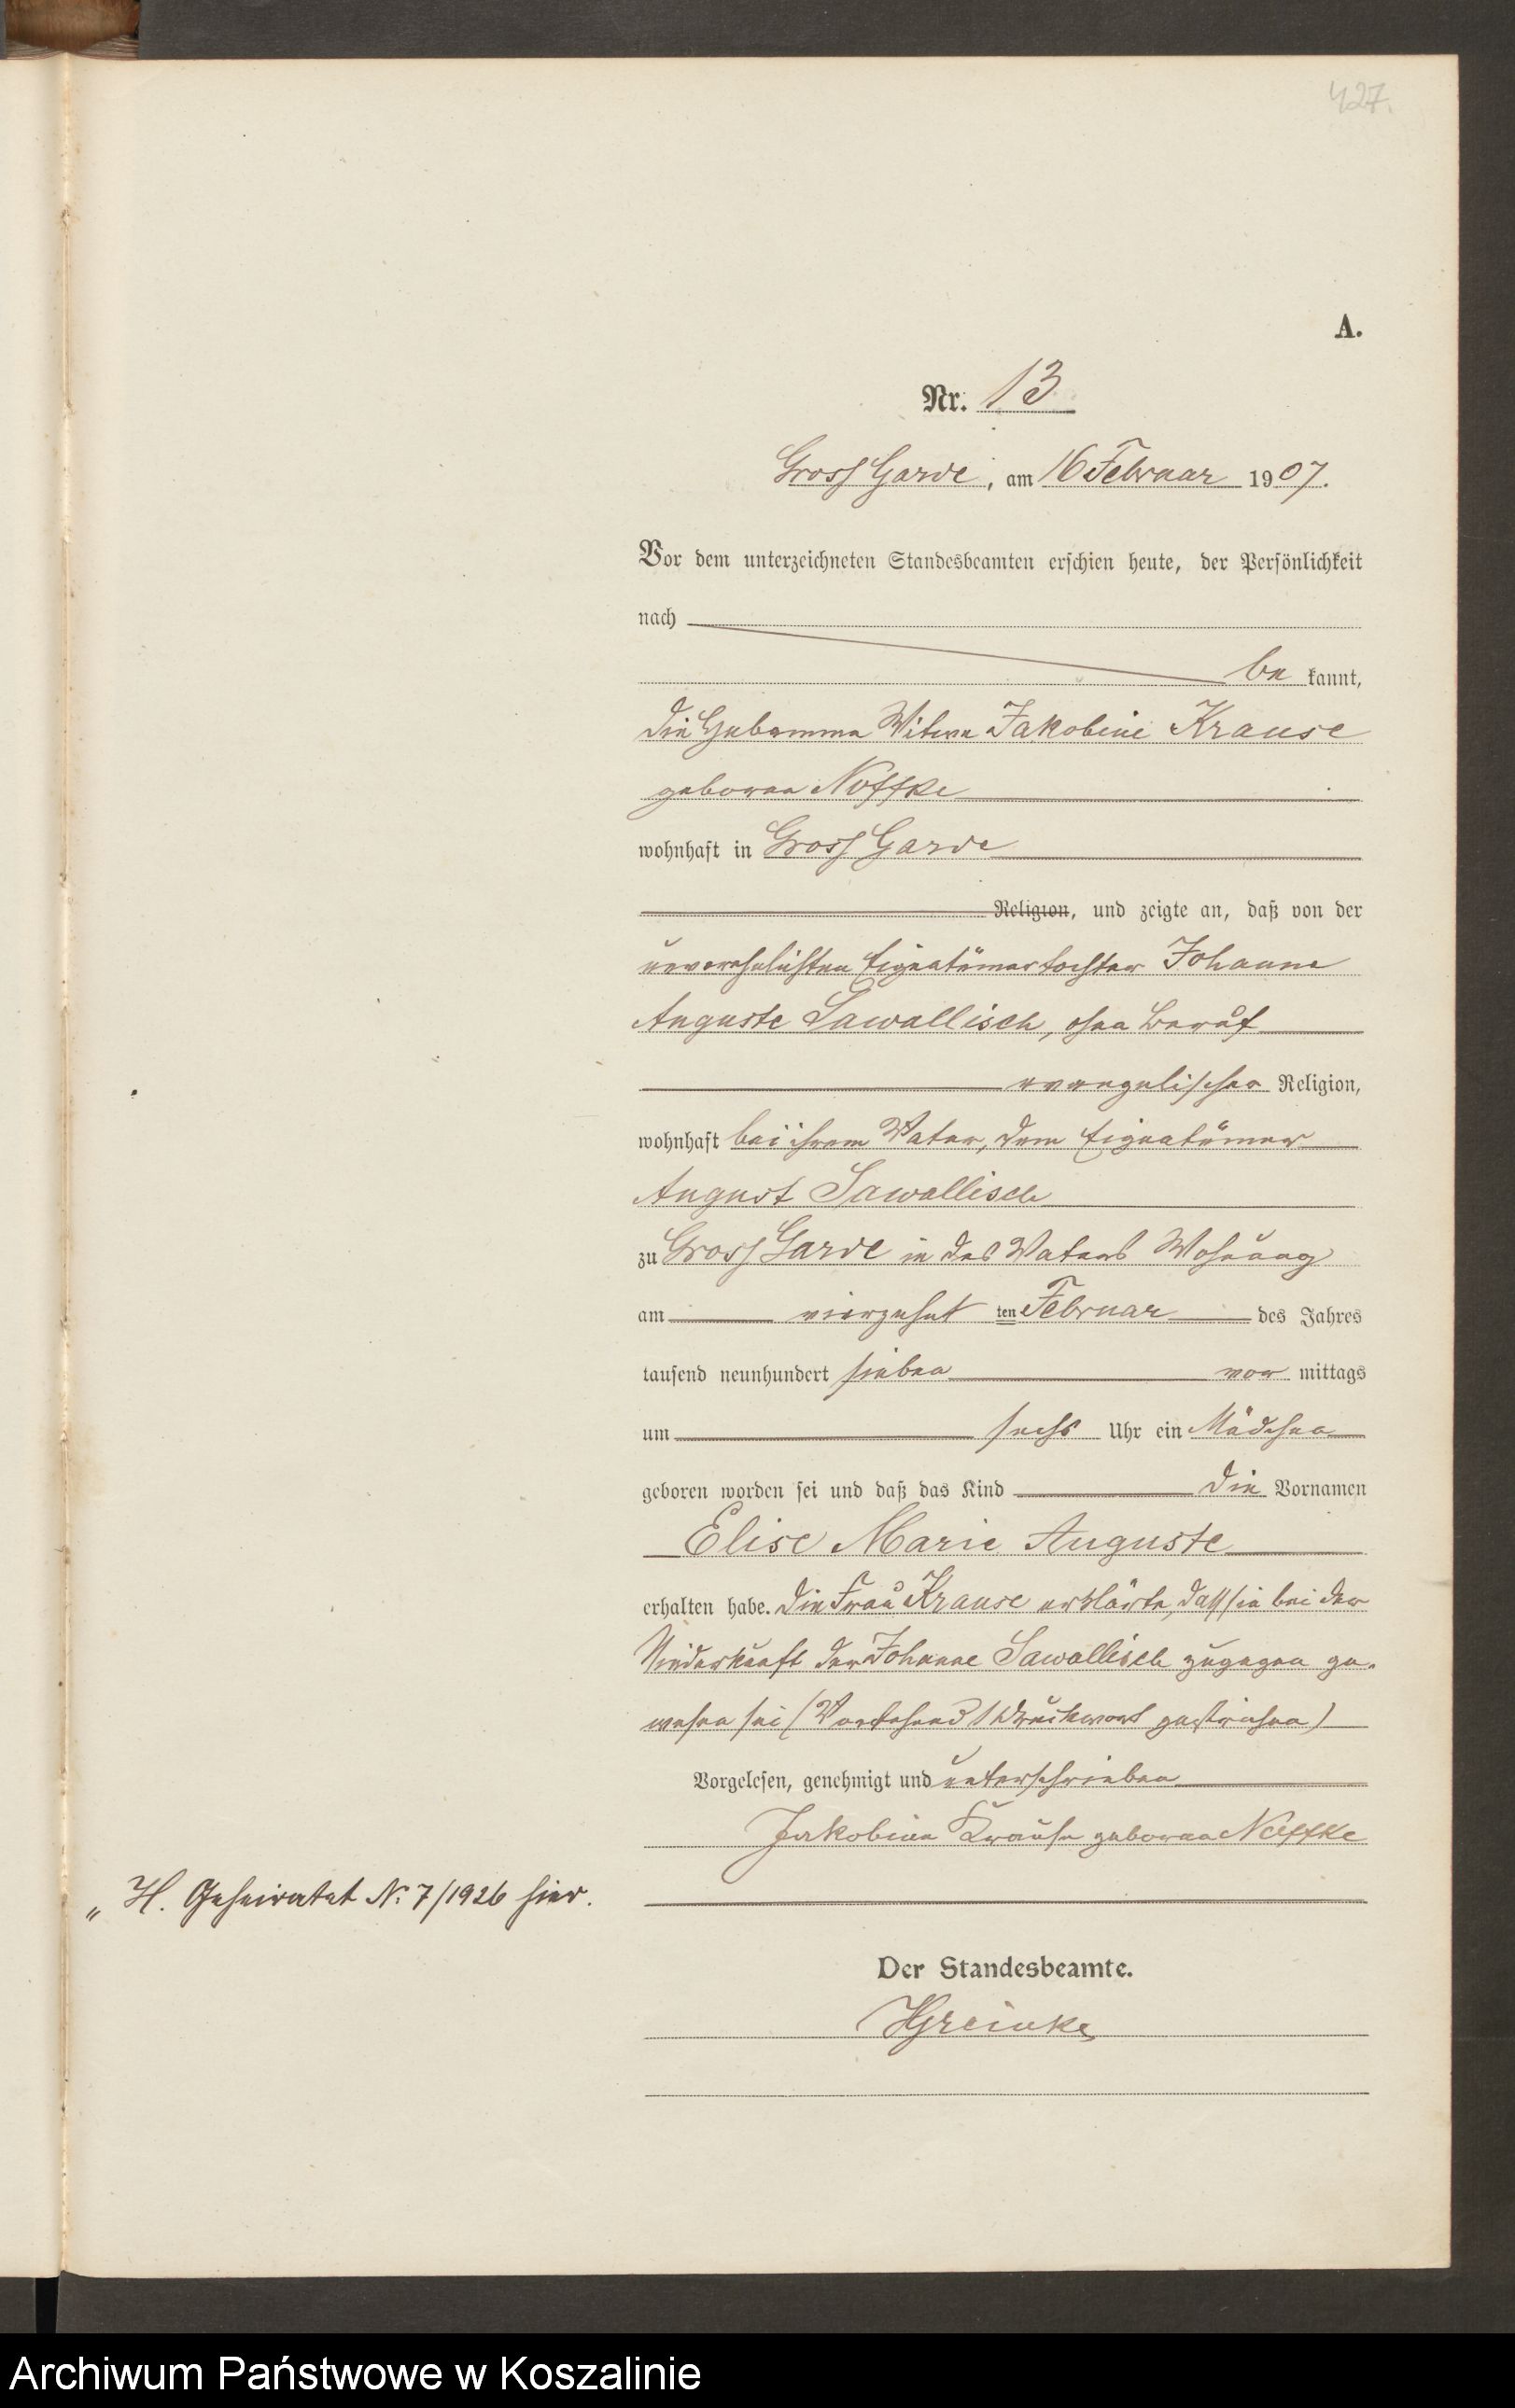 427.
A.
Nr. 13
Gross Garde, am 16 Februar 1907.
Vor dem unterzeichneten Standesbeamten erschien heute, der Persönlichkeit
nach
be kannt,
die Hebamme Witwe Jakobine Krause
geborne Noffke
wohnhaft in Gross Garde
Religion, und zeigte an, daß von der
unverehelichten Eigentümertochter Johanne
Auguste Sawallisch, ohne Beruf
evangelischer Religion,
wohnhaft bei ihrem Vater, dem Eigentümer
August Sawallisch
zu Gross Garde in des Vaters Wohnung
am vierzehnt ten Februar des Jahres
tausend neunhundert sieben vor mittags
um sechs Uhr ein Mädchen
geboren worden sei und daß das Kind die Vornamen
Elise Marie Auguste
erhalten habe. Die Frau Krause erklärte, dass sie bei der
Niederkunft der Johanne Sawallisch zugegen ge-
wesen sei (Vorstehend 1 Druckwort gestrichen)
Vorgelesen, genehmigt und unterschrieben
Jakobine Krause geborne Noffke
„ H. Geheiratet N: 7/1926 hier.
Der Standesbeamte.
Greinke
Archiwum Państwowe w Koszalinie